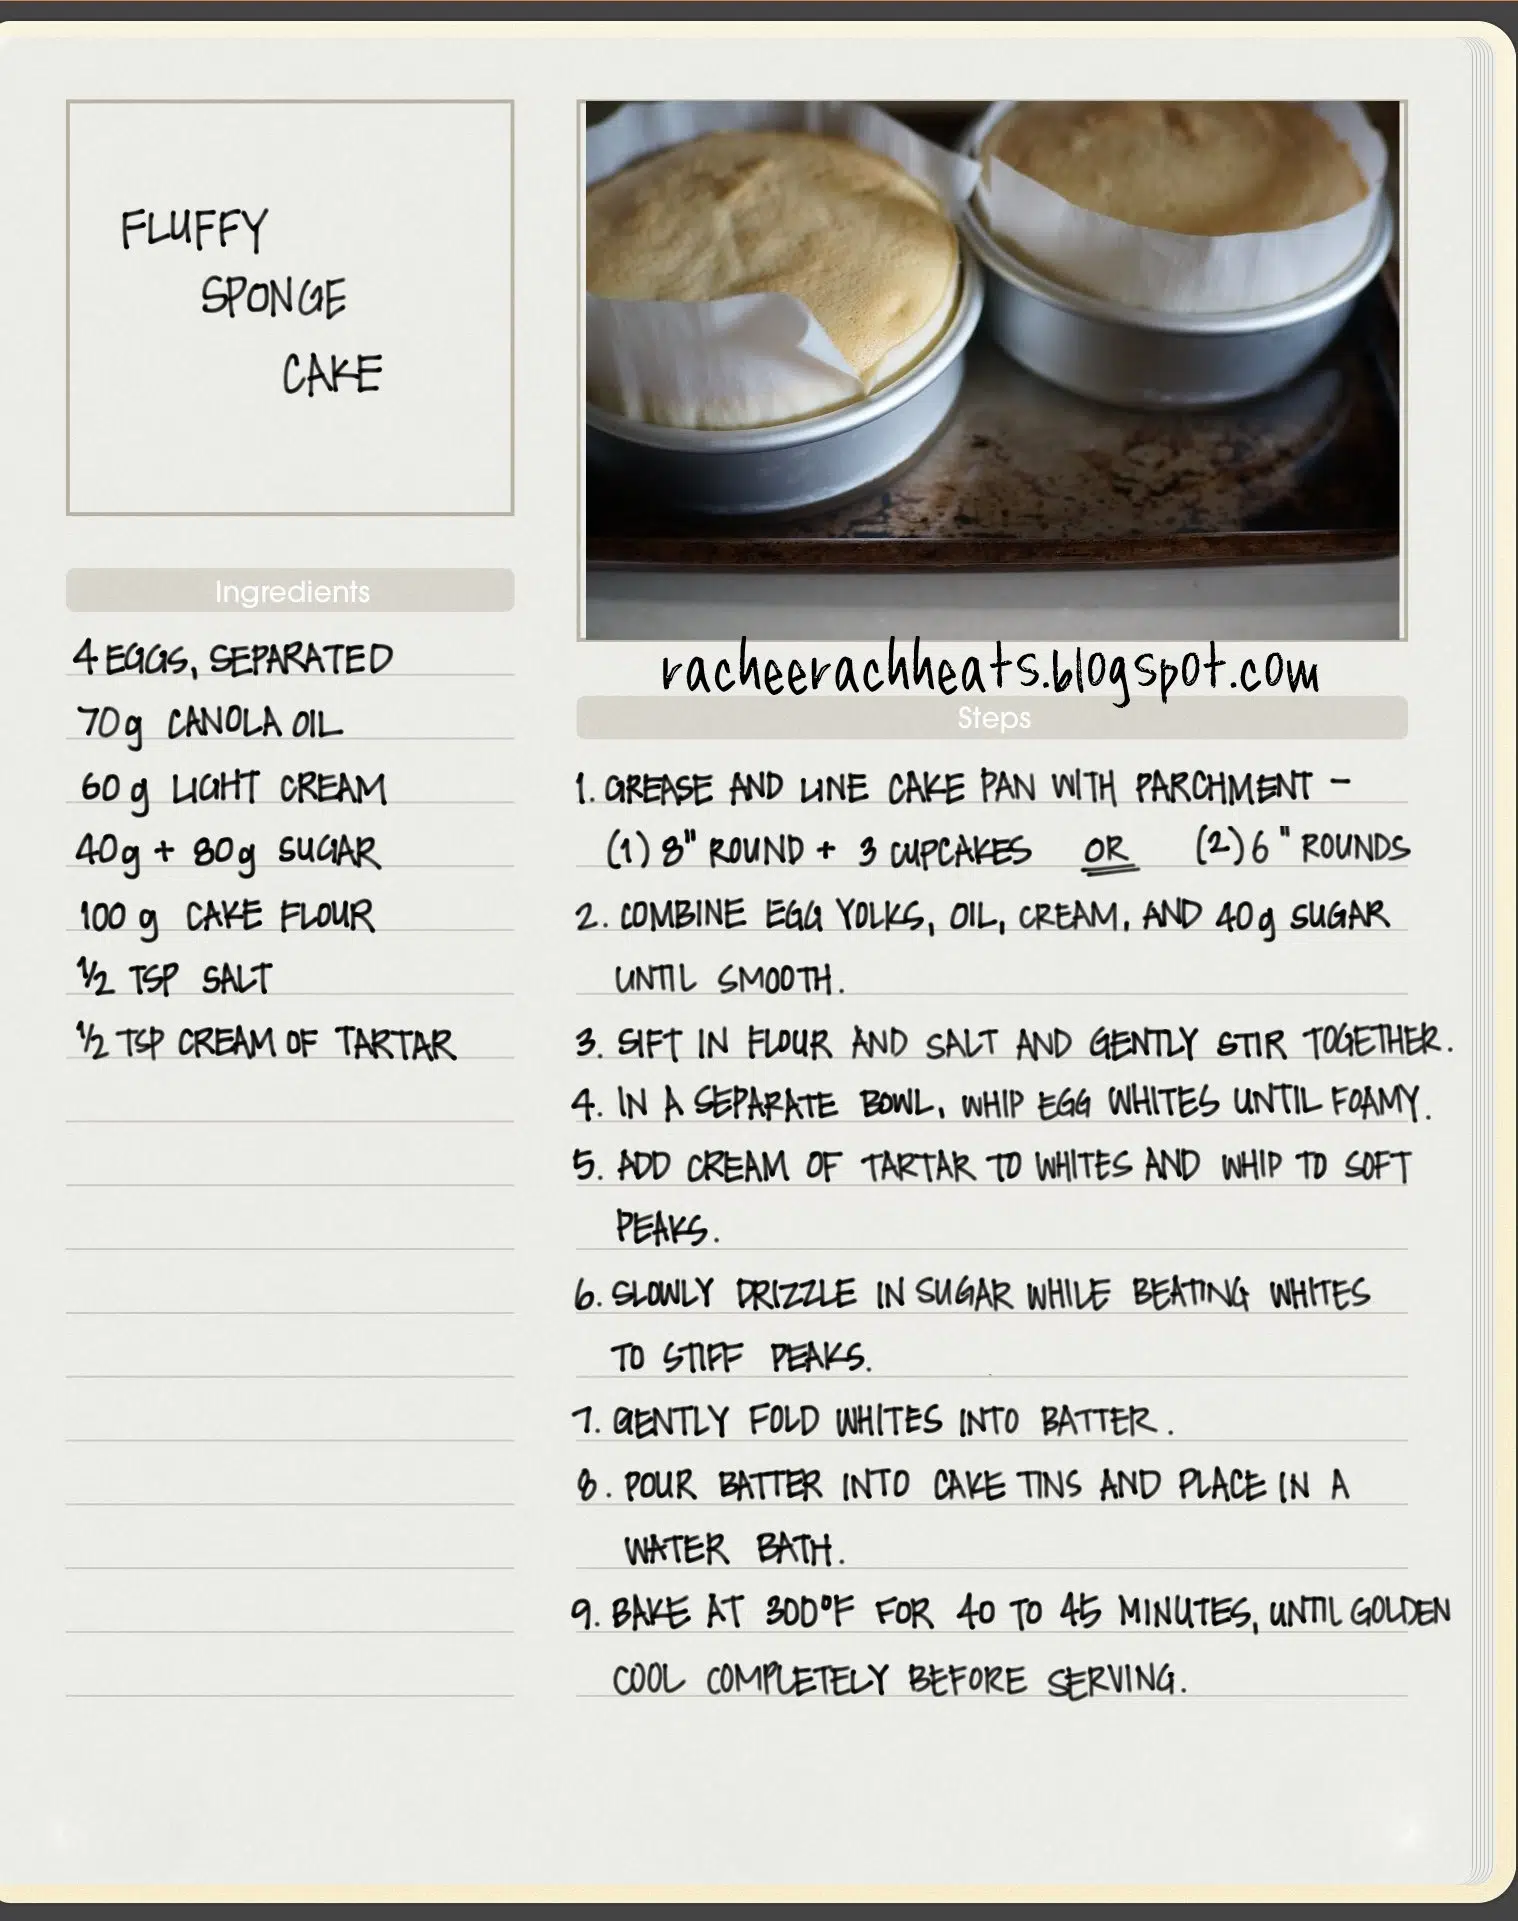 FLUFFY
SPONGE
CAKE
Ingredients
4 EGGS, SEPARATED
70g CANOLA OIL
60g LIGHT CREAM
40g + 80g SUGAR
100 g CAKE FLOUR
½ TSP SALT
½ TSP CREAM OF TARTAR
racheerachheats.blogspot.com
Steps
1. GREASE AND LINE CAKE PAN WITH PARCHMENT -
(1) 8" ROUND + 3 CUPCAKES OR (2) 6" ROUNDS
2. COMBINE EGG YOLKS, OIL, CREAM, AND 40g SUGAR
UNTIL SMOOTH.
3. SIFT IN FLOUR AND SALT AND GENTLY STIR TOGETHER.
4. IN A SEPARATE BOWL, WHIP EGG WHITES UNTIL FOAMY.
5. ADD CREAM OF TARTAR TO WHITES AND WHIP TO SOFT
PEAKS.
6. SLOWLY DRIZZLE IN SUGAR WHILE BEATING WHITES
TO STIFF PEAKS.
7. GENTLY FOLD WHITES INTO BATTER.
8. POUR BATTER INTO CAKE TINS AND PLACE IN A
WATER BATH.
9. BAKE AT 300°F FOR 40 TO 45 MINUTES, UNTIL GOLDEN
COOL COMPLETELY BEFORE SERVING.